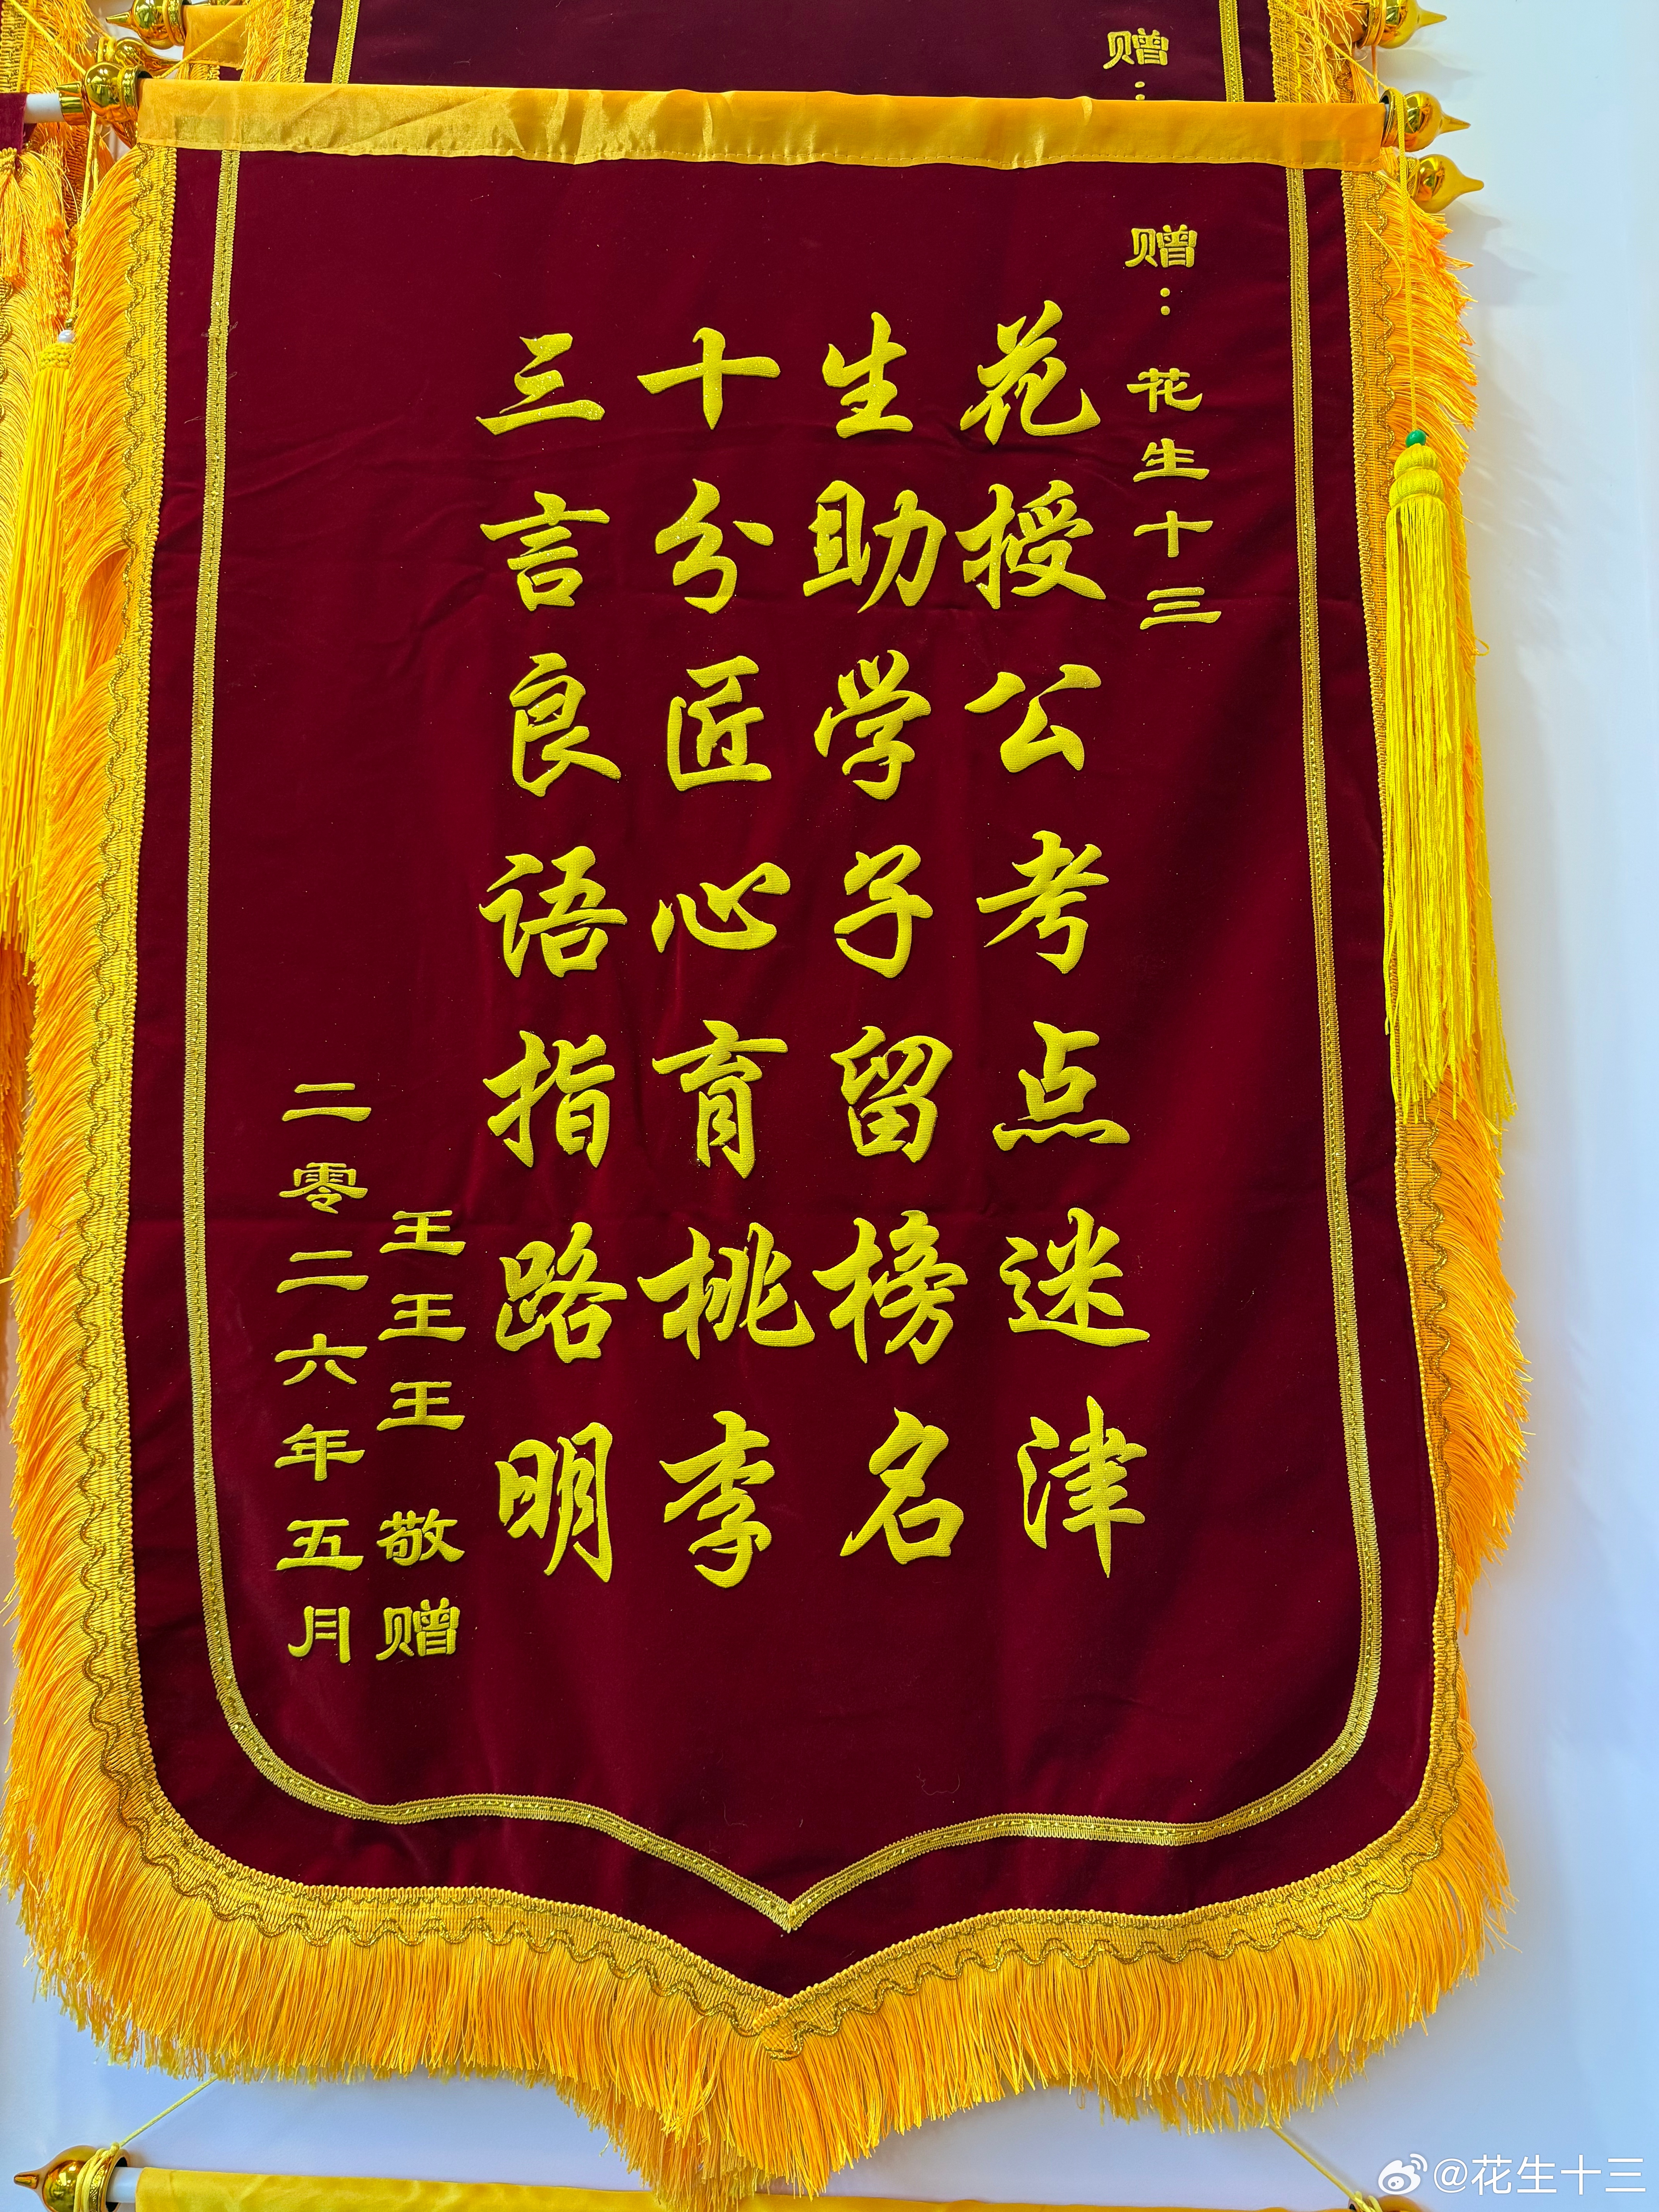 赠：
赠：花生十三
花授公考点迷津
生助学子留榜名
十分匠心育桃李
三言良语指路明
王王王 敬赠
二零二六年五月
@花生十三